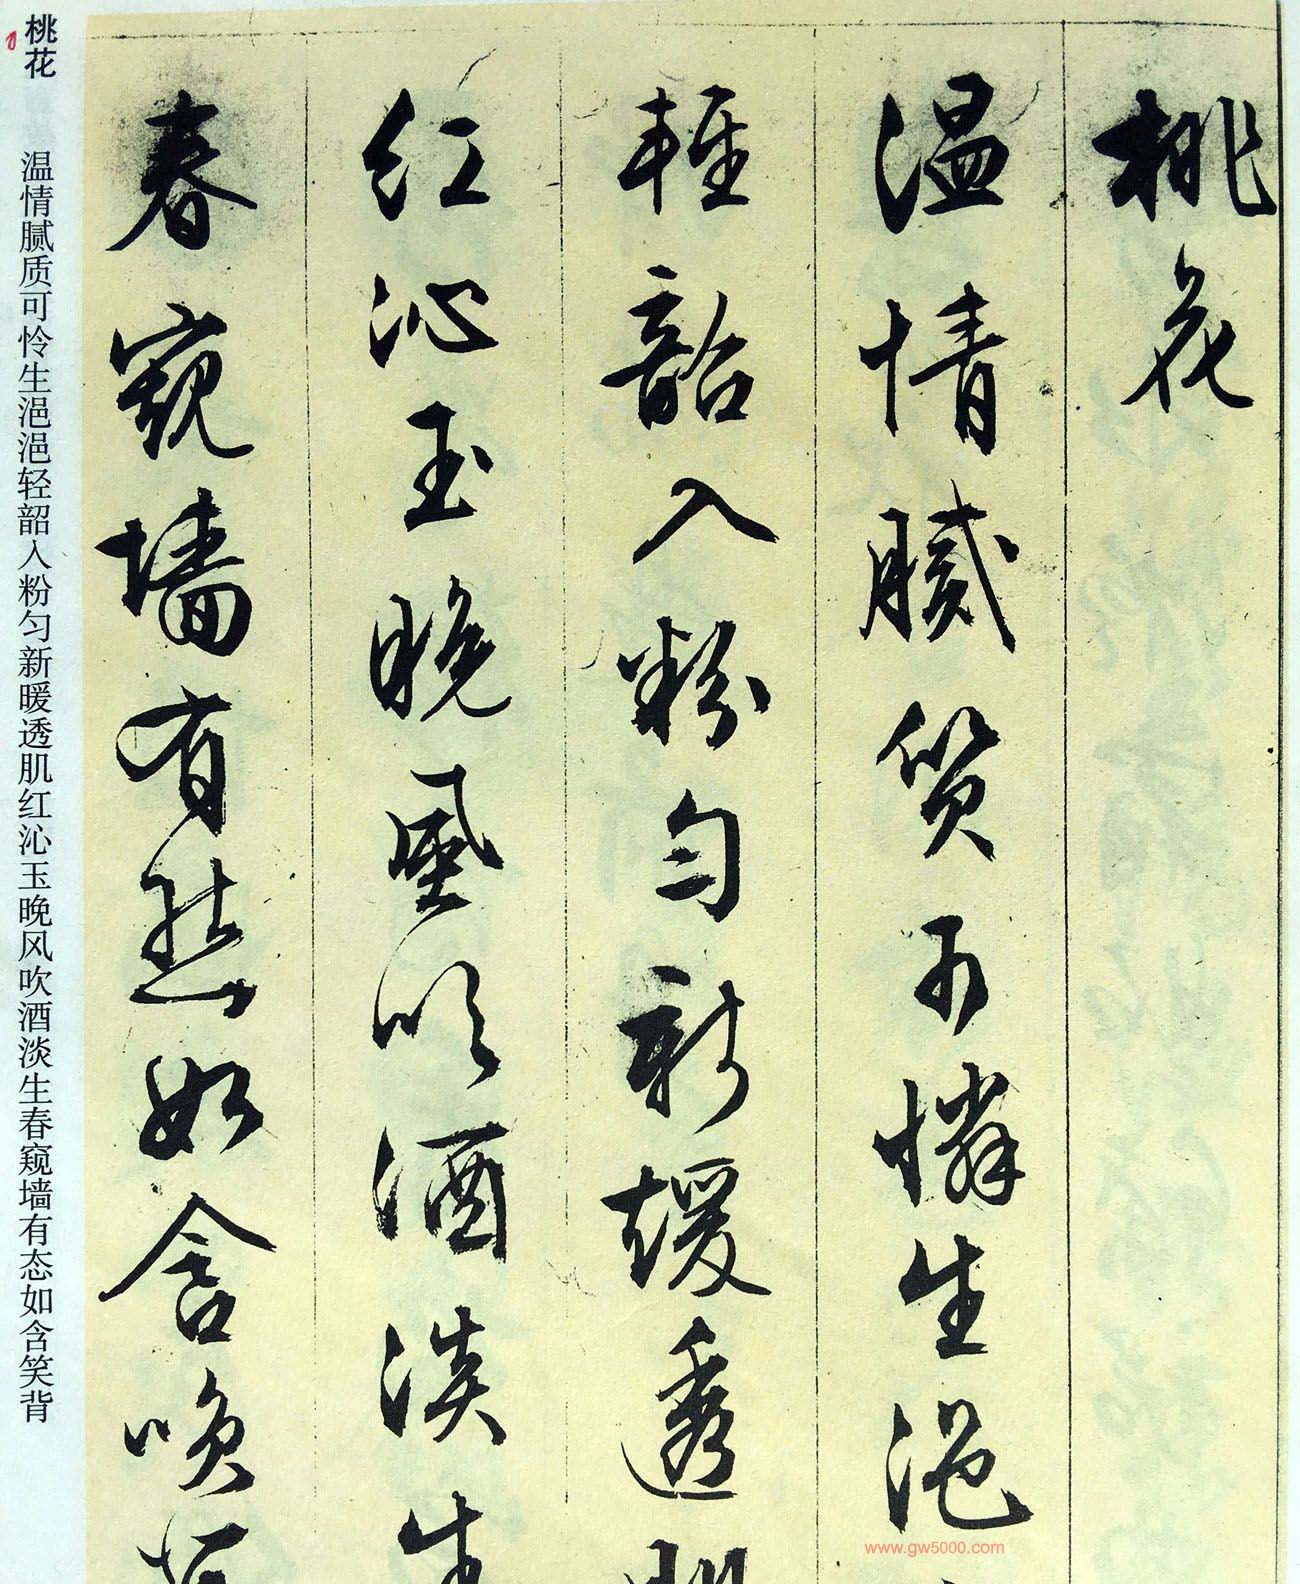 桃花
温情膩質可憐生浥
輕韶入粉匀新煖透肌
紅沁玉晚風吹酒淡生
春窺墙有態如含咲背
桃花
温情腻质可怜生浥浥轻韶入粉匀新暖透肌红沁玉晚风吹酒淡生春窥墙有态如含笑背
www.gw5000.com